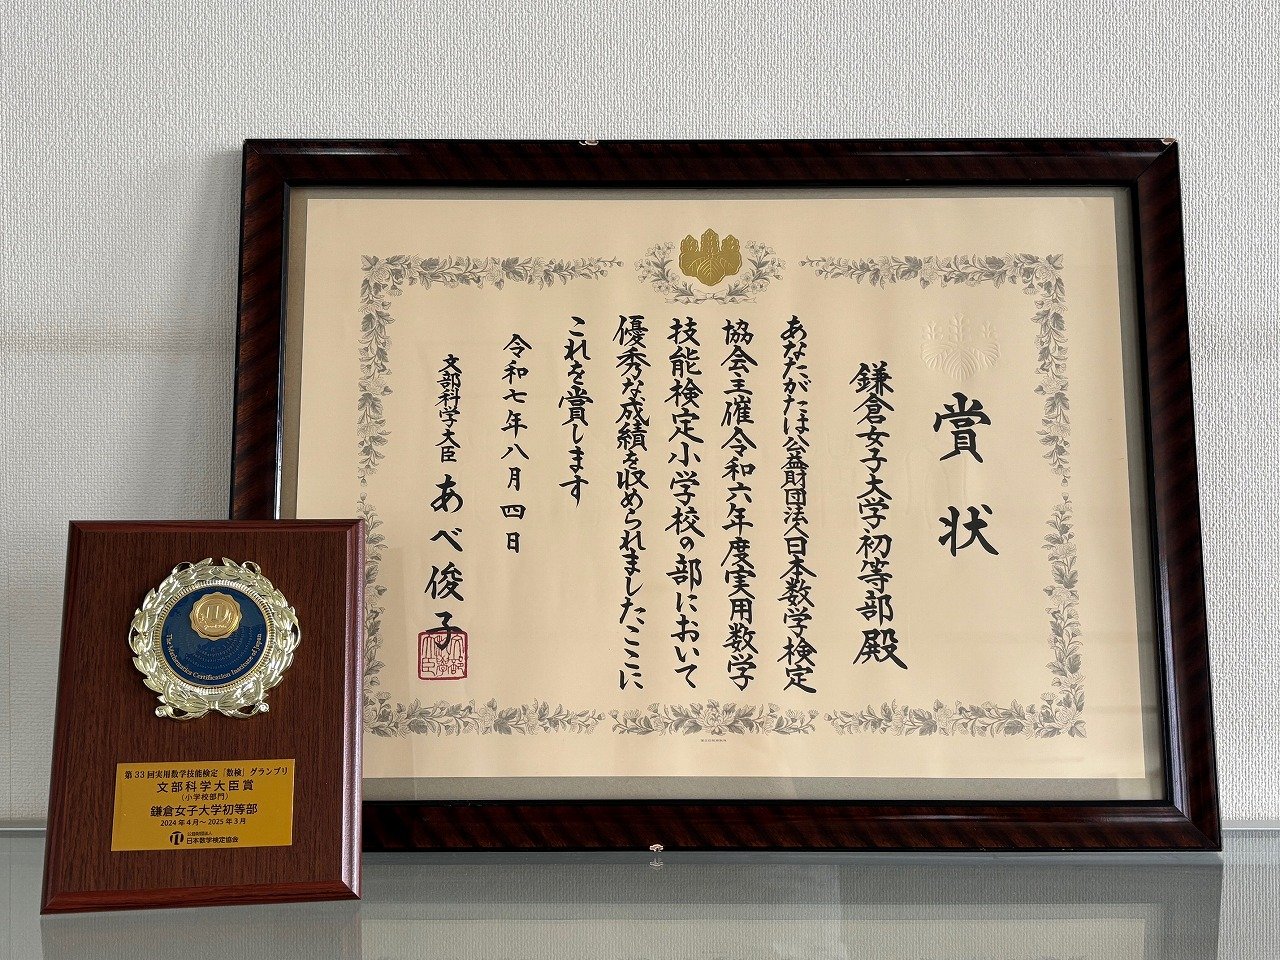 賞状
鎌倉女子大学初等部殿
あなたがたは公益財団法人日本数学検定
協会主催令和六年度実用数学
技能検定小学校の部において
優秀な成績を収められましたここに
これを賞します
令和七年八月四日
文部科学大臣 あべ俊子
The Mathematics Certification Institute of Japan
第33回実用数学技能検定「数検」グランプリ
文部科学大臣賞
(小学校部門)
鎌倉女子大学初等部
2024年4月～2025年3月
公益財団法人
日本数学検定協会